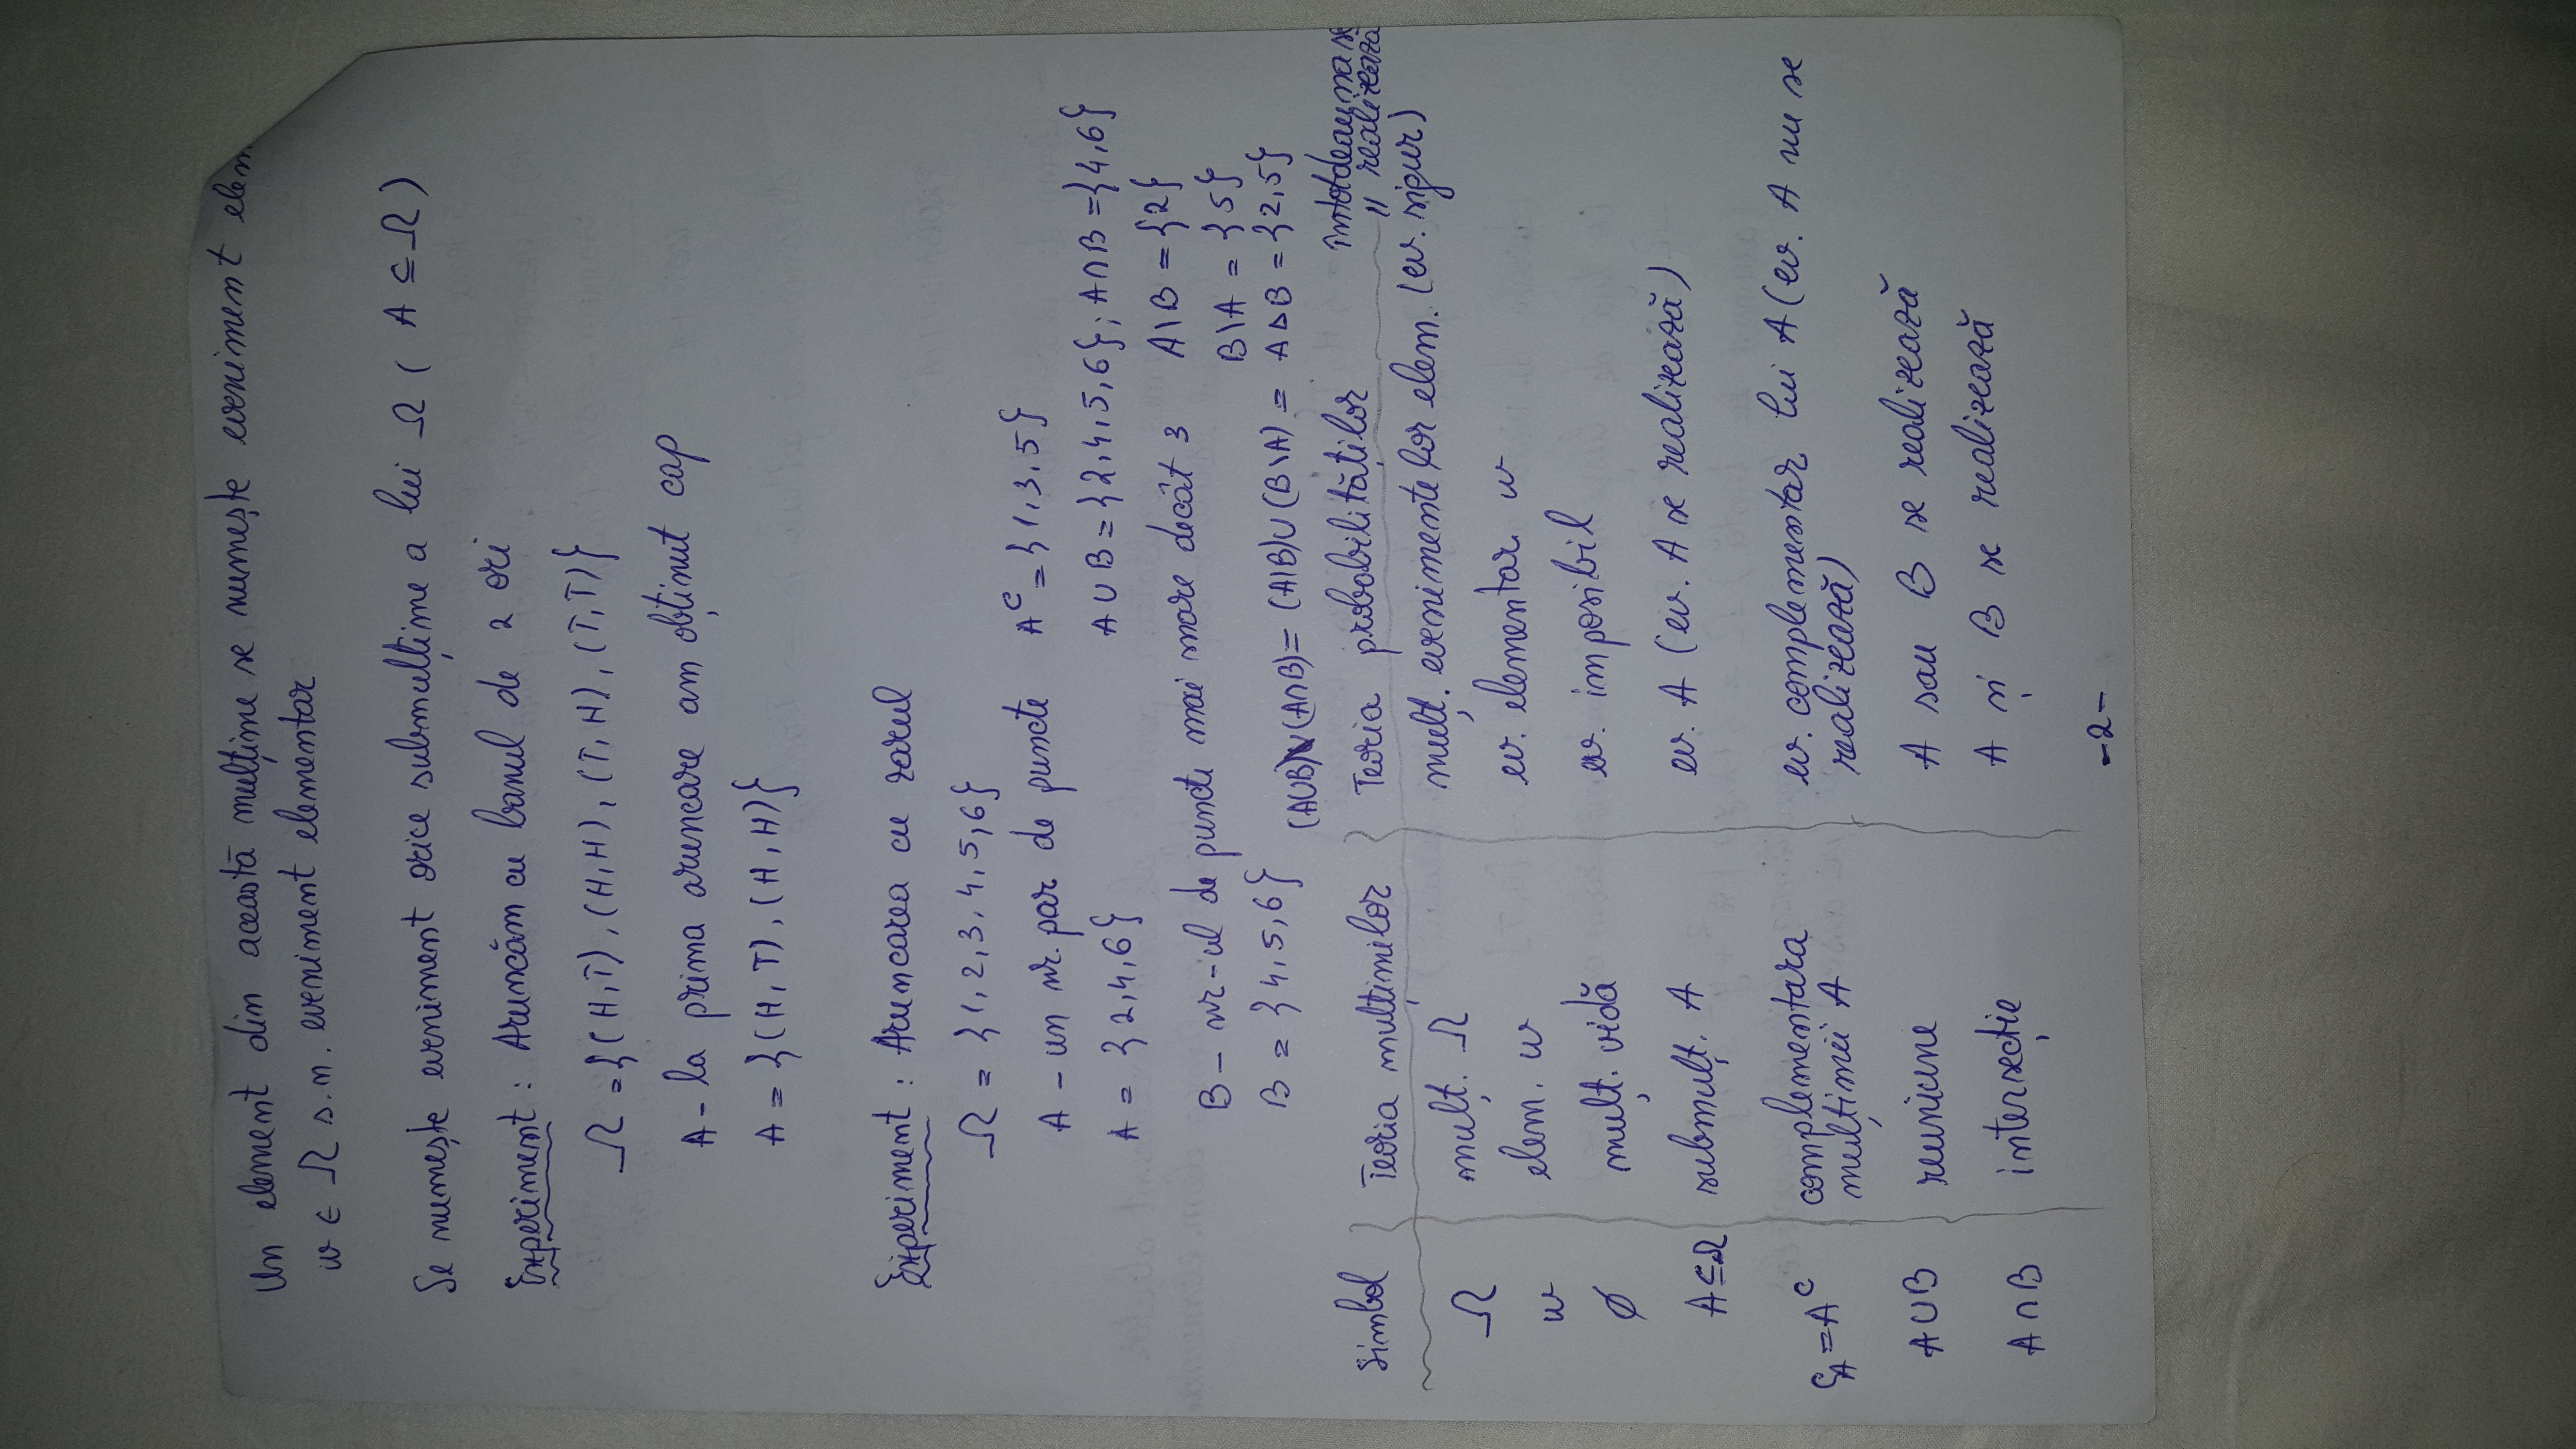 Un element din această mulțime se numește eveniment elem
w ∈ Ω s.n. eveniment elementar
Se numește eveniment orice submulțime a lui Ω ( A ⊆ Ω )
Experiment : Aruncăm cu banul de 2 ori
Ω = {(H,T), (H,H), (T,H), (T,T)}
A - la prima aruncare am obținut cap
A = {(H,T), (H,H)}
Experiment : Aruncarea cu zarul
Ω = {1,2,3,4,5,6}
A - un nr. par de puncte A^C = {1,3,5}
A = {2,4,6} A∪B = {2,4,5,6}; A∩B = {4,6}
B - nr-ul de puncte mai mare decât 3 A\B = {2}
B\A = {5}
B = {4,5,6} (A∪B)\(A∩B) = (A\B)∪(B\A) = A∆B = {2,5}
Simbol Teoria mulțimilor Teoria probabilităților întotdeauna se
" realizează
Ω mulț. Ω mulț. evenimentelor elem. (ev. sigur)
w elem. w ev. elementar w
∅ mulț. vidă ev. imposibil
A⊆Ω submulț. A ev. A (ev. A se realizează)
C_A = A^C complementara ev. complementar lui A (ev. A nu se
mulțimii A realizează)
A∪B reuniune A sau B se realizează
A∩B intersecție A și B se realizează
-2-